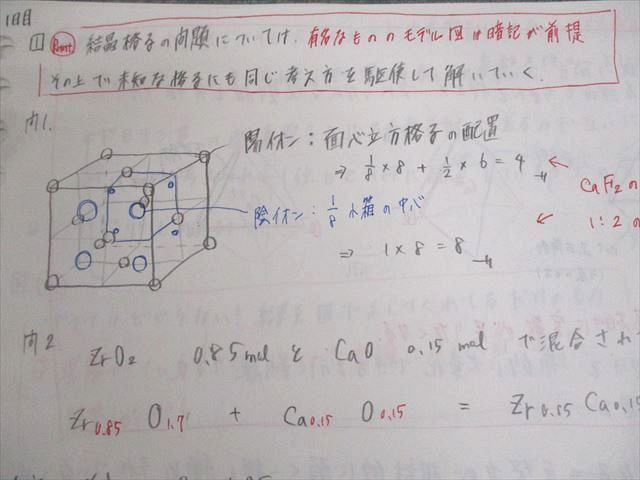 1日目
1 Point 結晶格子の問題については、有名なもののモデル図は暗記が前提
その上で未知な格子にも同じ考え方を駆使して解いていく.
問1.
陽イオン：面心立方格子の配置
⇒ 1/8 × 8 + 1/2 × 6 = 4
CaF2の
陰イオン：1/8 小箱の中心
1:2の
⇒ 1 × 8 = 8
問2
ZrO2 0.85mol と CaO 0.15mol で混合され
Zr0.85 O1.7 + Ca0.15 O0.15 = Zr0.85 Ca0.15